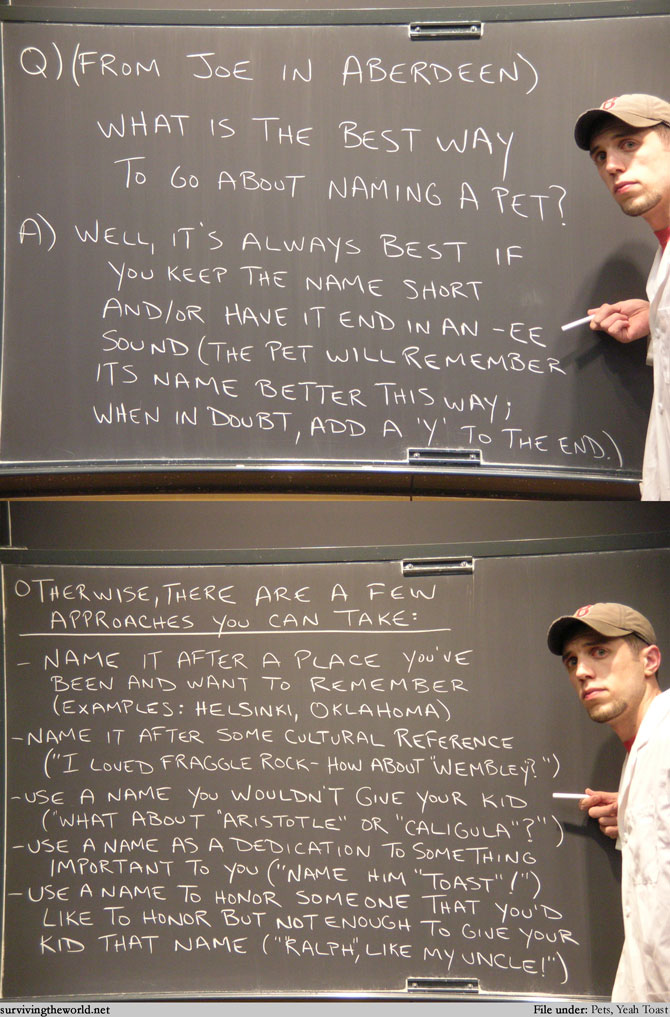 Q) (FROM JOE IN ABERDEEN)
WHAT IS THE BEST WAY
TO GO ABOUT NAMING A PET?
A) WELL, IT'S ALWAYS BEST IF
YOU KEEP THE NAME SHORT
AND/OR HAVE IT END IN AN -EE
SOUND (THE PET WILL REMEMBER
ITS NAME BETTER THIS WAY;
WHEN IN DOUBT, ADD A 'Y' TO THE END.)
OTHERWISE, THERE ARE A FEW
APPROACHES YOU CAN TAKE:
- NAME IT AFTER A PLACE YOU'VE
BEEN AND WANT TO REMEMBER
(EXAMPLES: HELSINKI, OKLAHOMA)
- NAME IT AFTER SOME CULTURAL REFERENCE
("I LOVED FRAGGLE ROCK - HOW ABOUT "WEMBLEY?")
- USE A NAME YOU WOULDN'T GIVE YOUR KID
("WHAT ABOUT "ARISTOTLE" OR "CALIGULA"?")
- USE A NAME AS A DEDICATION TO SOMETHING
IMPORTANT TO YOU ("NAME HIM "TOAST"!")
- USE A NAME TO HONOR SOMEONE THAT YOU'D
LIKE TO HONOR BUT NOT ENOUGH TO GIVE YOUR
KID THAT NAME ("RALPH", LIKE MY UNCLE!")
survivingtheworld.net File under: Pets, Yeah Toast